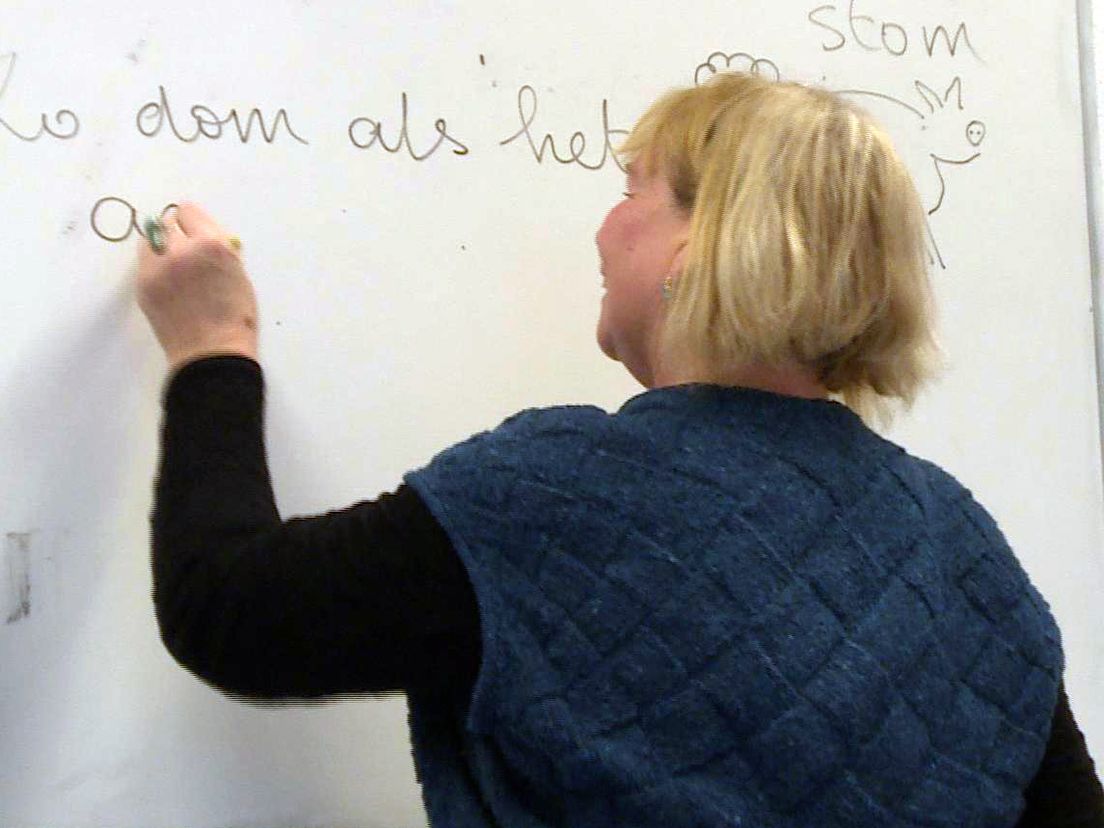 stom
Zo dom als het
a